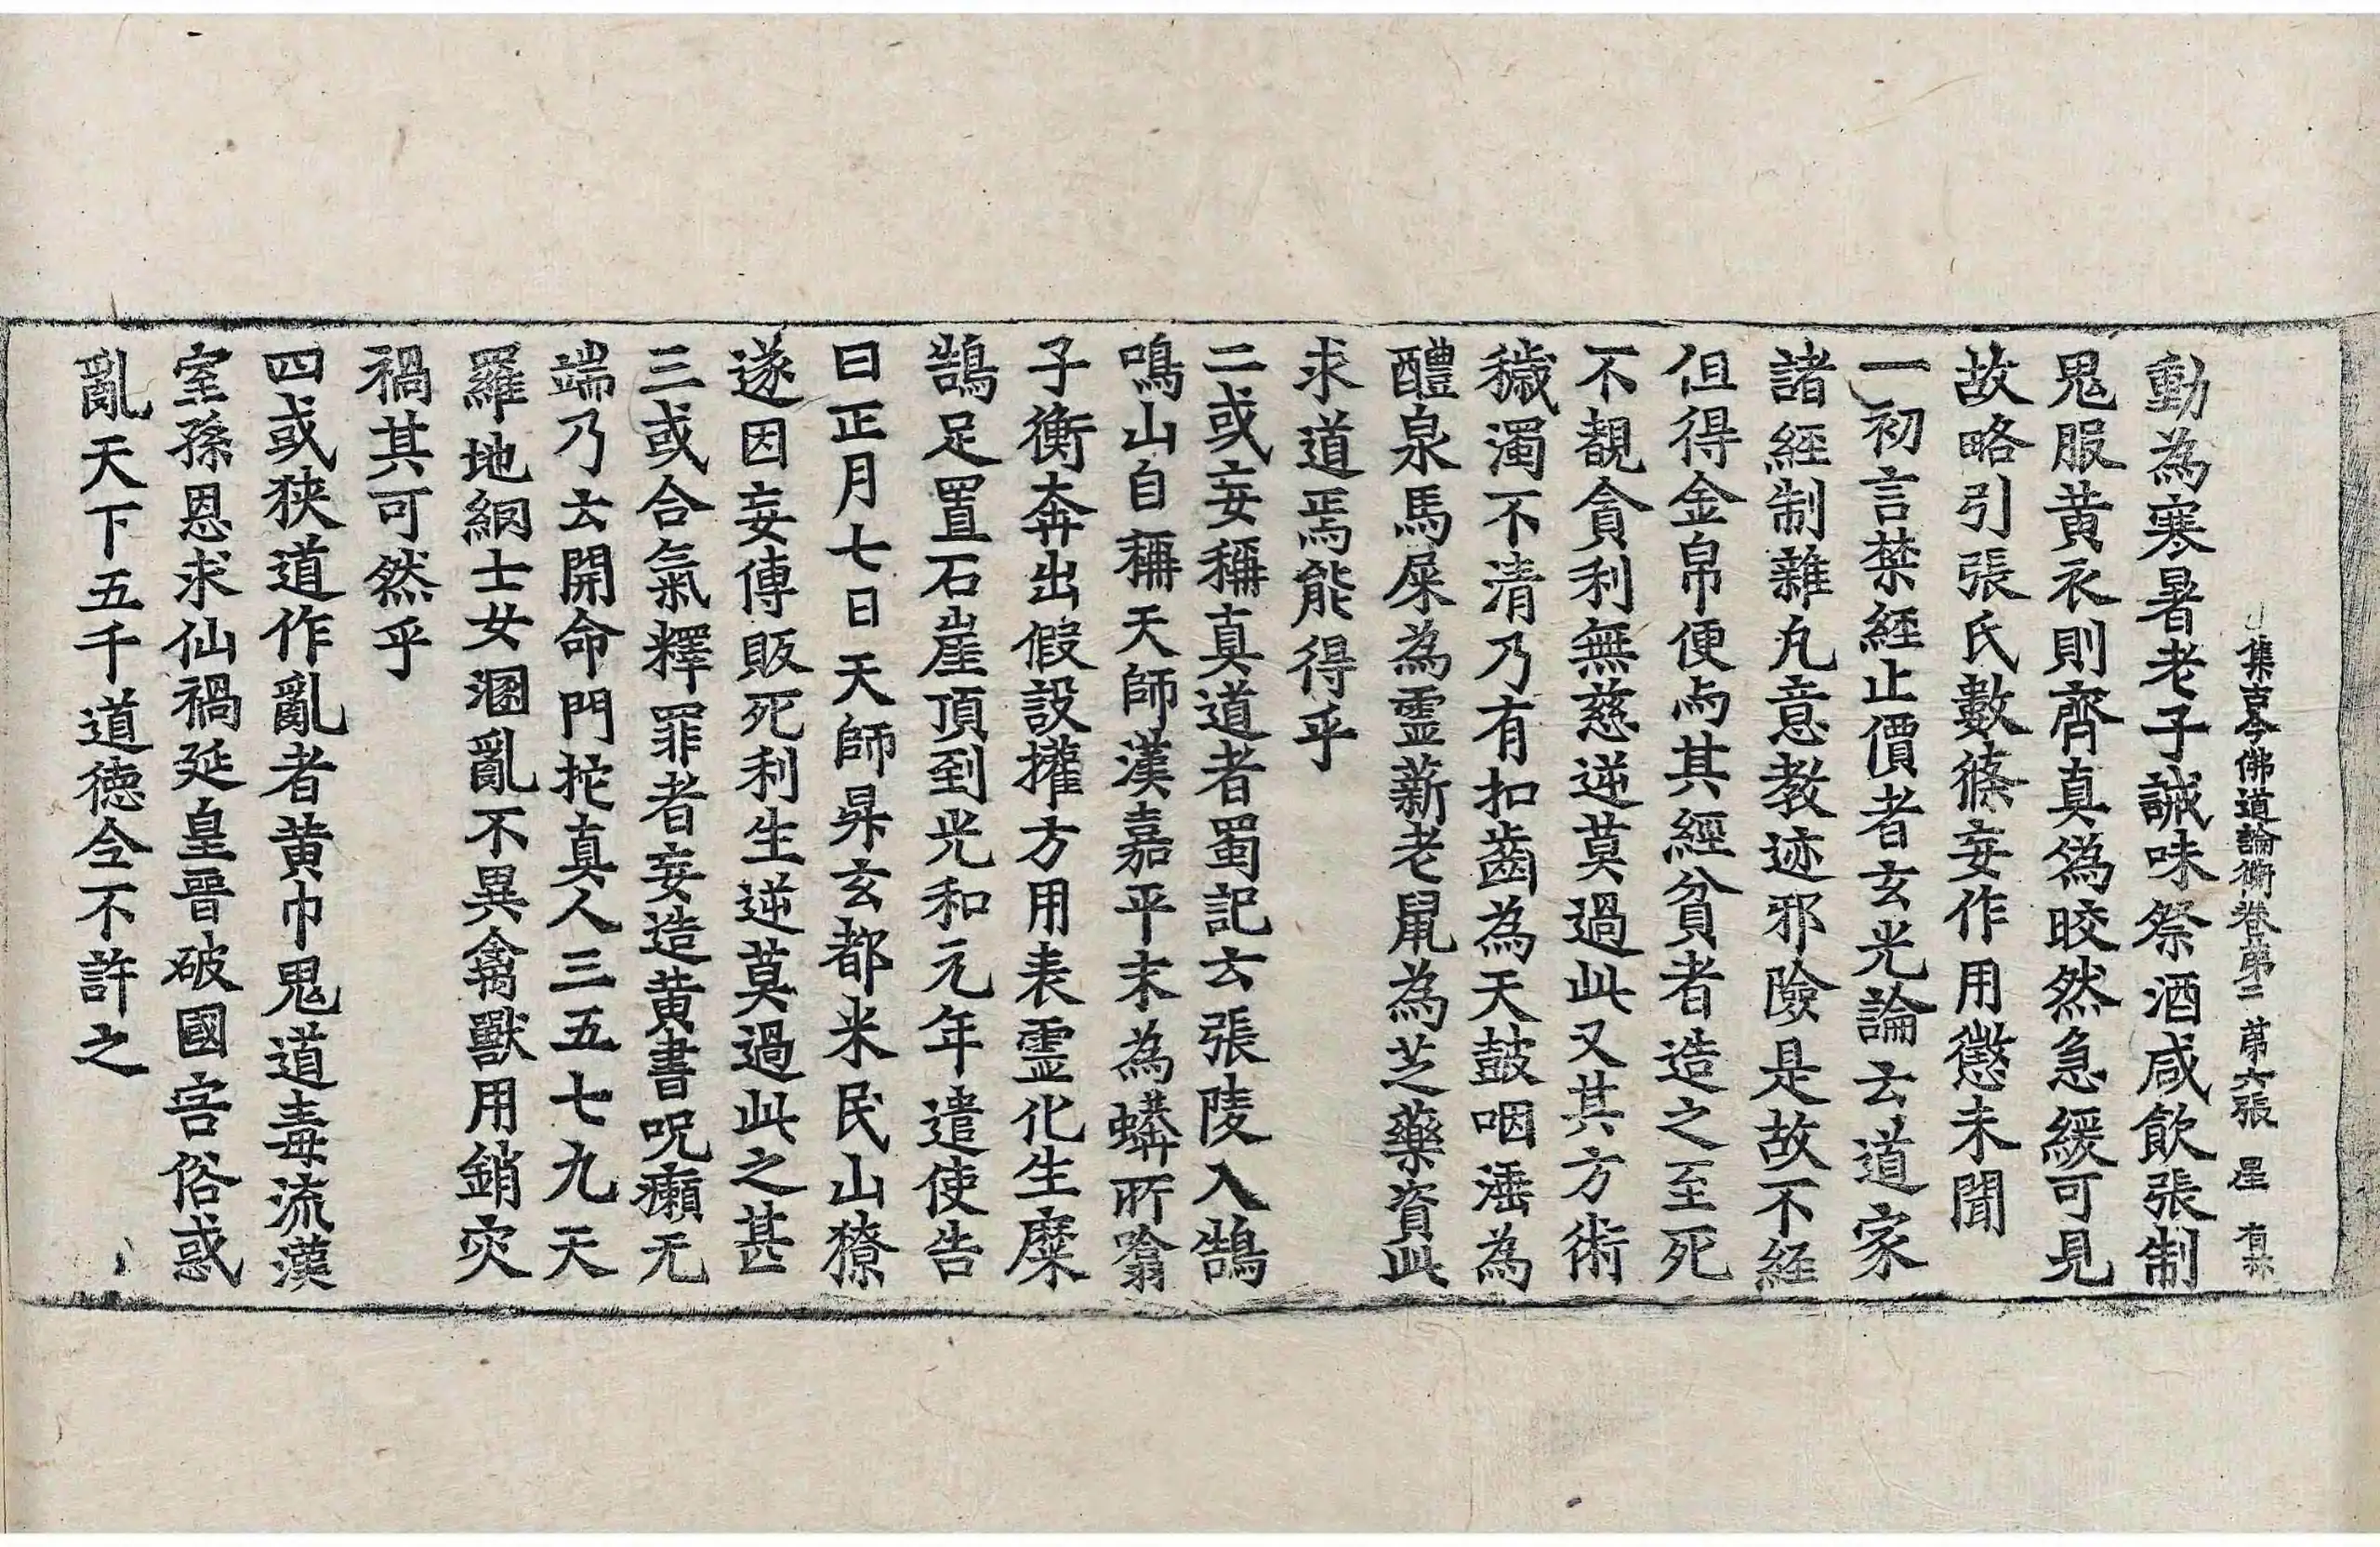 集古今佛道論衡卷第二 苐六張 星
動為寒暑老子誡味祭酒咸飲張制
鬼服黄衣則齊真偽晈然急緩可見
故略引張氏數條妄作用懲未聞
一初言禁經止價者玄光論云道家
諸經制雜凡意教迹邪險是故不経
但得金帛便与其經貧者造之至死
不覩貪利無慈逆莫過此又其方術
穢濁不清乃有扣齒為天鼓咽唾為
醴泉馬屎為靈薪老鼠為芝藥資此
求道焉能得乎
二或妄稱真道者蜀記云張陵入鵠
鳴山自稱天師漢嘉平末為蟒所噏
子衡奔出假設權方用表靈化生糜
鵠足置石崖頂到光和元年遣使告
曰正月七日天師昇玄都米民山獠
遂因妄傳販死利生逆莫過此之甚
三或合氣釋罪者妄造黄書呪癩无
端乃云開命門抱真人三五七九天
羅地網士女溷亂不異禽獸用銷灾
禍其可然乎
四或挾道作亂者黄巾鬼道毒流漢
室孫恩求仙禍延皇晉破國害俗惑
亂天下五千道徳今不許之